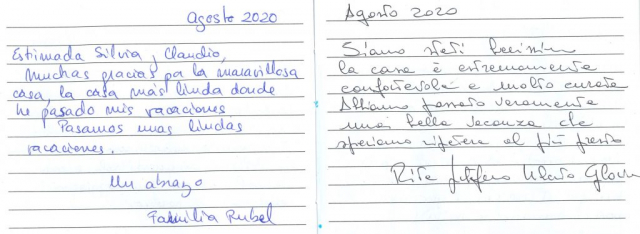 agosto 2020
Estimada Silvia y Claudio,
Muchas gracias por la maravillosa
casa, la casa más linda donde
he pasado mis vacaciones
Pasamos unas lindas
vacaciones.
Un abrazo
Familia Rubel
Agosto 2020
Siamo stati benissimo
la casa è estremamente
confortevole e molto curata
Abbiamo passato veramente
una bella vacanza che
speriamo ripetere al più presto
Rita